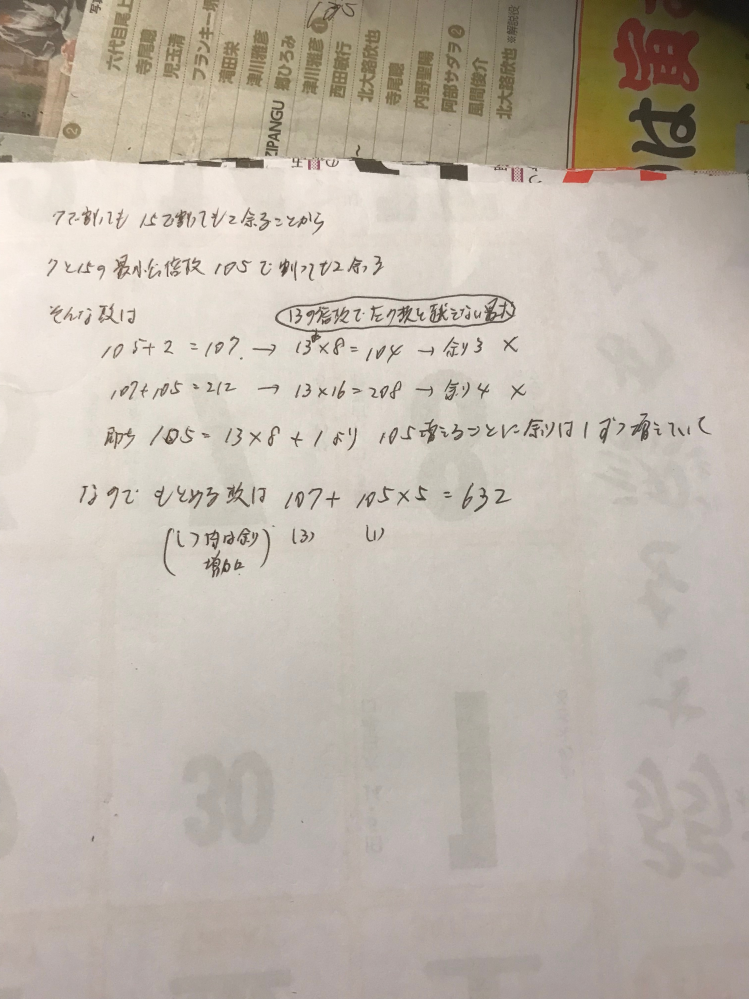 六代目尾上
寺尾聰
児玉清
フランキー堺
滝田栄
津川雅彦
ZIPANGU 郷ひろみ
津川雅彦
西田敏行
北大路欣也
寺尾聰
内野聖陽
阿部サダヲ②
風間俊介
北大路欣也 ※解説役
②
は寅
7で割っても 15で割っても2余ることから
7と15の最小公倍数 105で割っても2余る
そんな数は
13の倍数で左の数を超えない最大
105+2=107. → 13×8=104 → 余り3 ×
107+105=212 → 13×16=208 → 余り4 ×
即ち 105=13×8+1より 105増えるごとに余りは1ずつ増えていく
なので もとめる数は 107+105×5=632
( )内は余り (3) (1)
増加
30